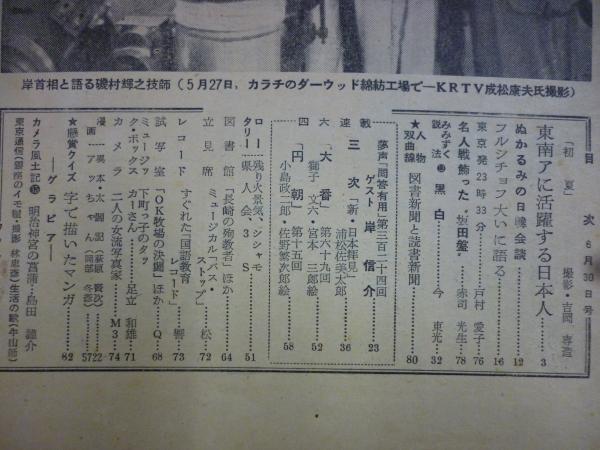 岸首相と語る磯村輝之技師（5月27日，カラチのダーウッド綿紡工場で―KRTV成松康夫氏撮影）
目次 6月30日号
「初夏」 撮影・吉岡専造
東南アに活躍する日本人 3
ぬかるみの日韓会談 12
フルシチョフ大いに語る 16
東京発23時33分 戸村愛子 76
名人戦飾った“坂田盤” 赤司光生 78
みみずく説法 黒白 今東光 32
★人物双曲線 図書新聞と読書新聞 80
連載
夢声「問答有用」第三百二十四回 ゲスト 岸信介 23
三次「新・日本拝見」 浦松佐美太郎 36
六「大番」第六十九回 獅子文六・宮本三郎絵 52
四「円朝」第十五回 小島政二郎・佐野繁次郎絵 58
ロータリー 残り火景気、シシャモ 県人会、3S 51
図書館 「長崎の殉教者」ほか 64
立見席 ミュージカル「バス・ストップ」 松 72
レコード すぐれた「国語教育レコード」 響 73
試写室 「OK牧場の決闘」ほか Q 68
ミュージック・ボックス 下町っ子のタッカーさん 足立和雄 71
カメラ 二人の女流写真家 M3 74
漫画 22
アッちゃん（岡部冬彦） 57
★懸賞クイズ 字で描いたマンガ 82
―グラビア―
カメラ風土記⑮ 明治神宮の菖蒲・島田謹介
東京通信（銀座のイモ堀・撮影 林忠彦）生活の歌（牛山節）